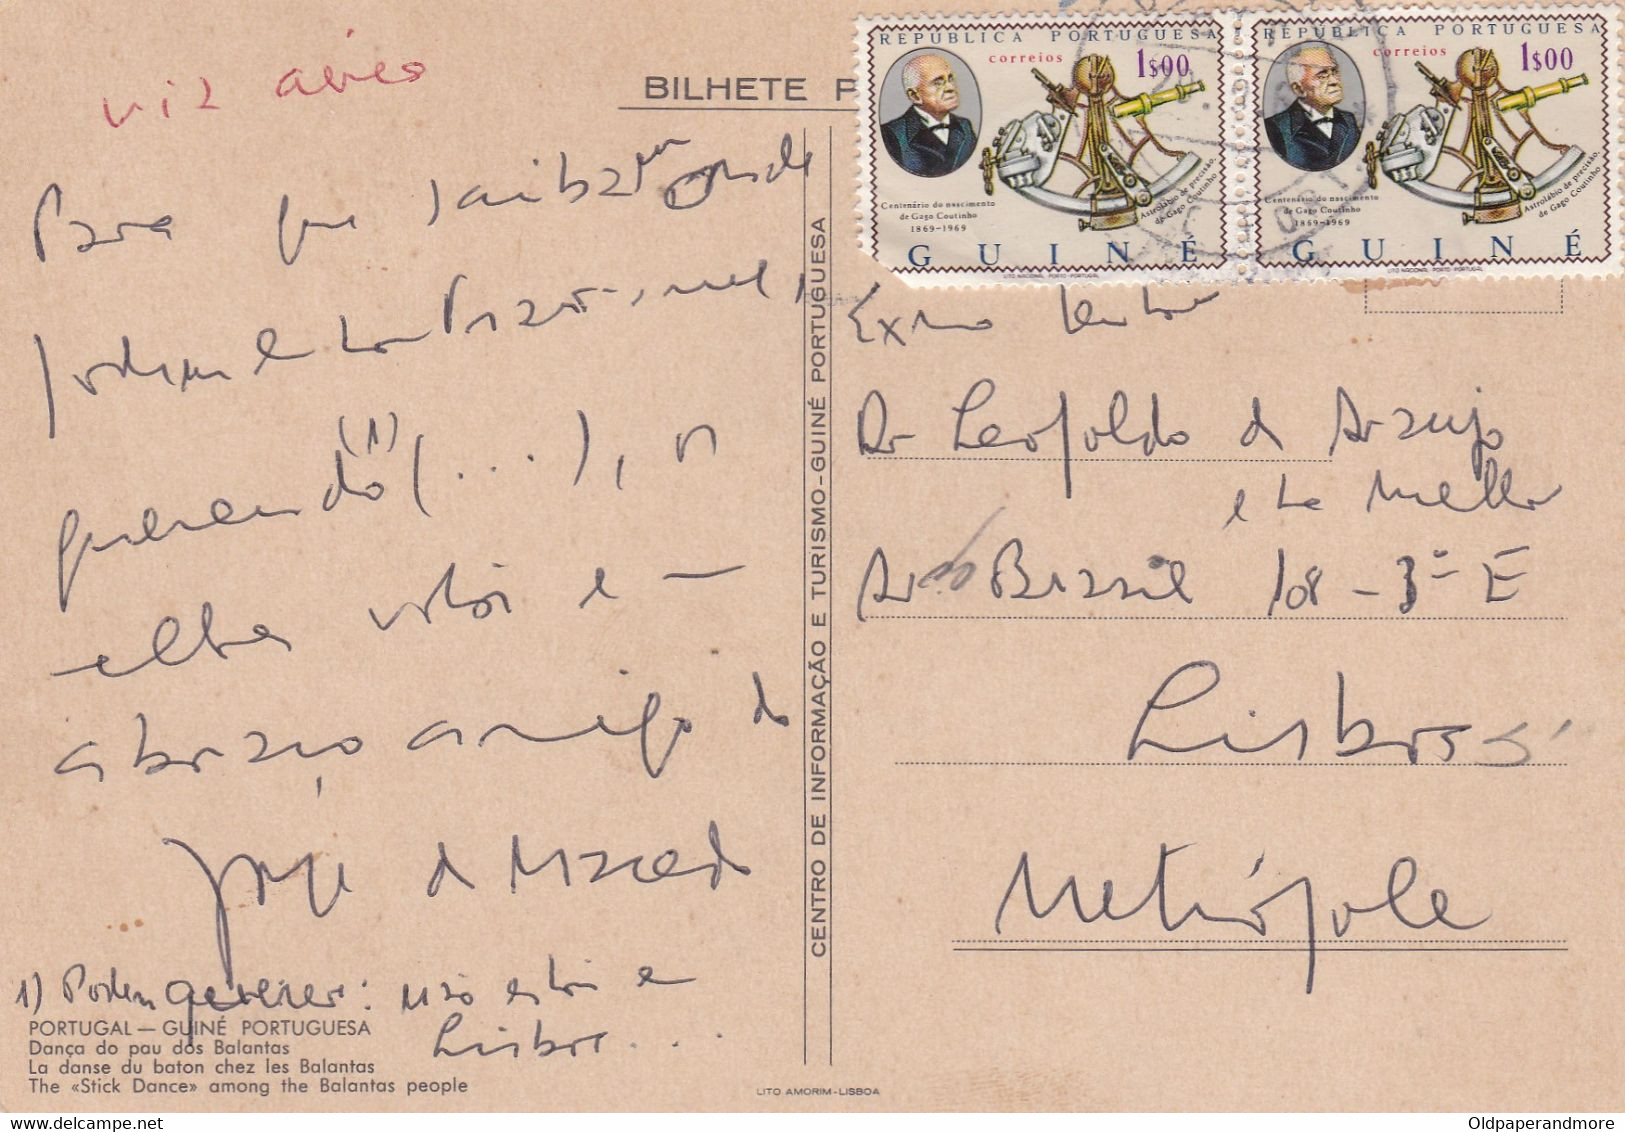 via aérea
BILHETE P
Para que saibam onde
podem
querendo (1) (...), n
abraço amigo do
Jorge de Macedo
1) Podem querer: não estou em
Lisboa...
PORTUGAL — GUINÉ PORTUGUESA
Dança do pau dos Balantas
La danse du baton chez les Balantas
The «Stick Dance» among the Balantas people
CENTRO DE INFORMAÇÃO E TURISMO-GUINÉ PORTUGUESA
LITO AMORIM-LISBOA
REPÚBLICA PORTUGUESA
correios 1$00
Centenário do nascimento
de Gago Coutinho
1869-1969
Astrolábio de precisão,
de Gago Coutinho
GUINÉ
LITO NACIONAL PORTO PORTUGAL
REPÚBLICA PORTUGUESA
correios 1$00
Centenário do nascimento
de Gago Coutinho
1869-1969
Astrolábio de precisão,
de Gago Coutinho
GUINÉ
LITO NACIONAL PORTO PORTUGAL
Exmo Senhor
Dr Leopoldo de Araujo
e Mello
Av do Brasil 108 - 3º E
Lisboa
Metrópole
Oldpaperandmore
delcampe.net